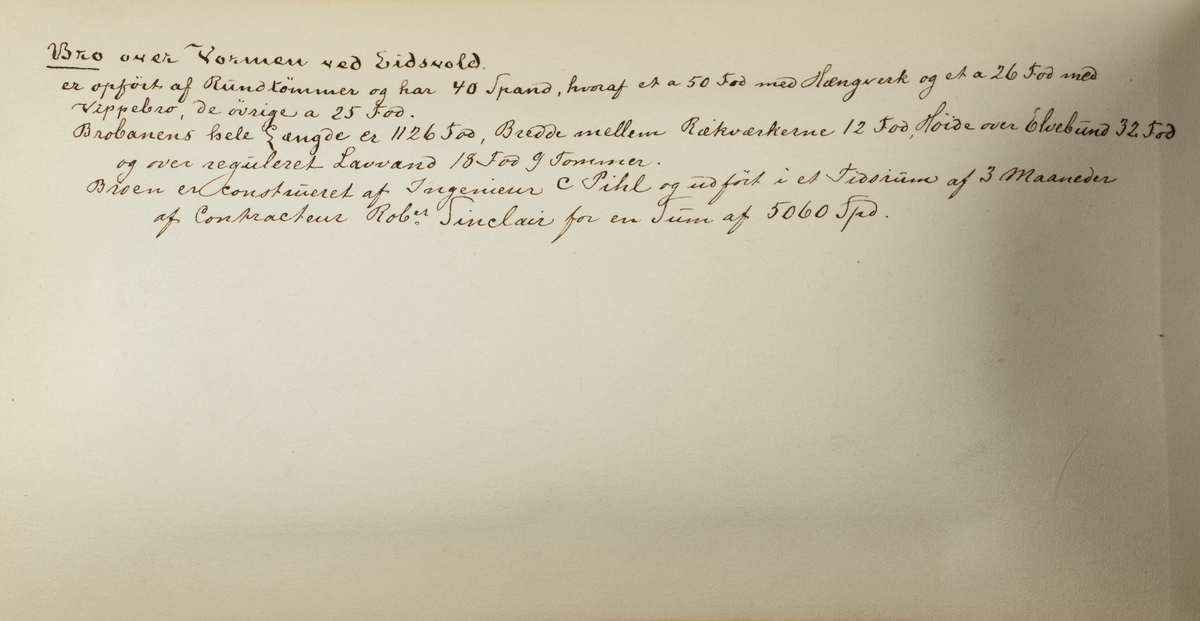 Bro over Vormen ved Eidsvold.
er opfört af Rundtömmer og har 40 Spand, hvoraf et a 50 Fod med Hængverk og et a 26 Fod med
Vippebro, de övrige a 25 Fod.
Brobanens hele Længde er 1126 Fod, Bredde mellem Rækværkerne 12 Fod, Höide over Elvebund 32 Fod
og over reguleret Lavvand 18 Fod 9 Tommer.
Broen er construeret af Ingenieur C Pihl og udfört i et Tidsrum af 3 Maaneder
af Contracteur Rob:er Sinclair for en Sum af 5060 Spd.